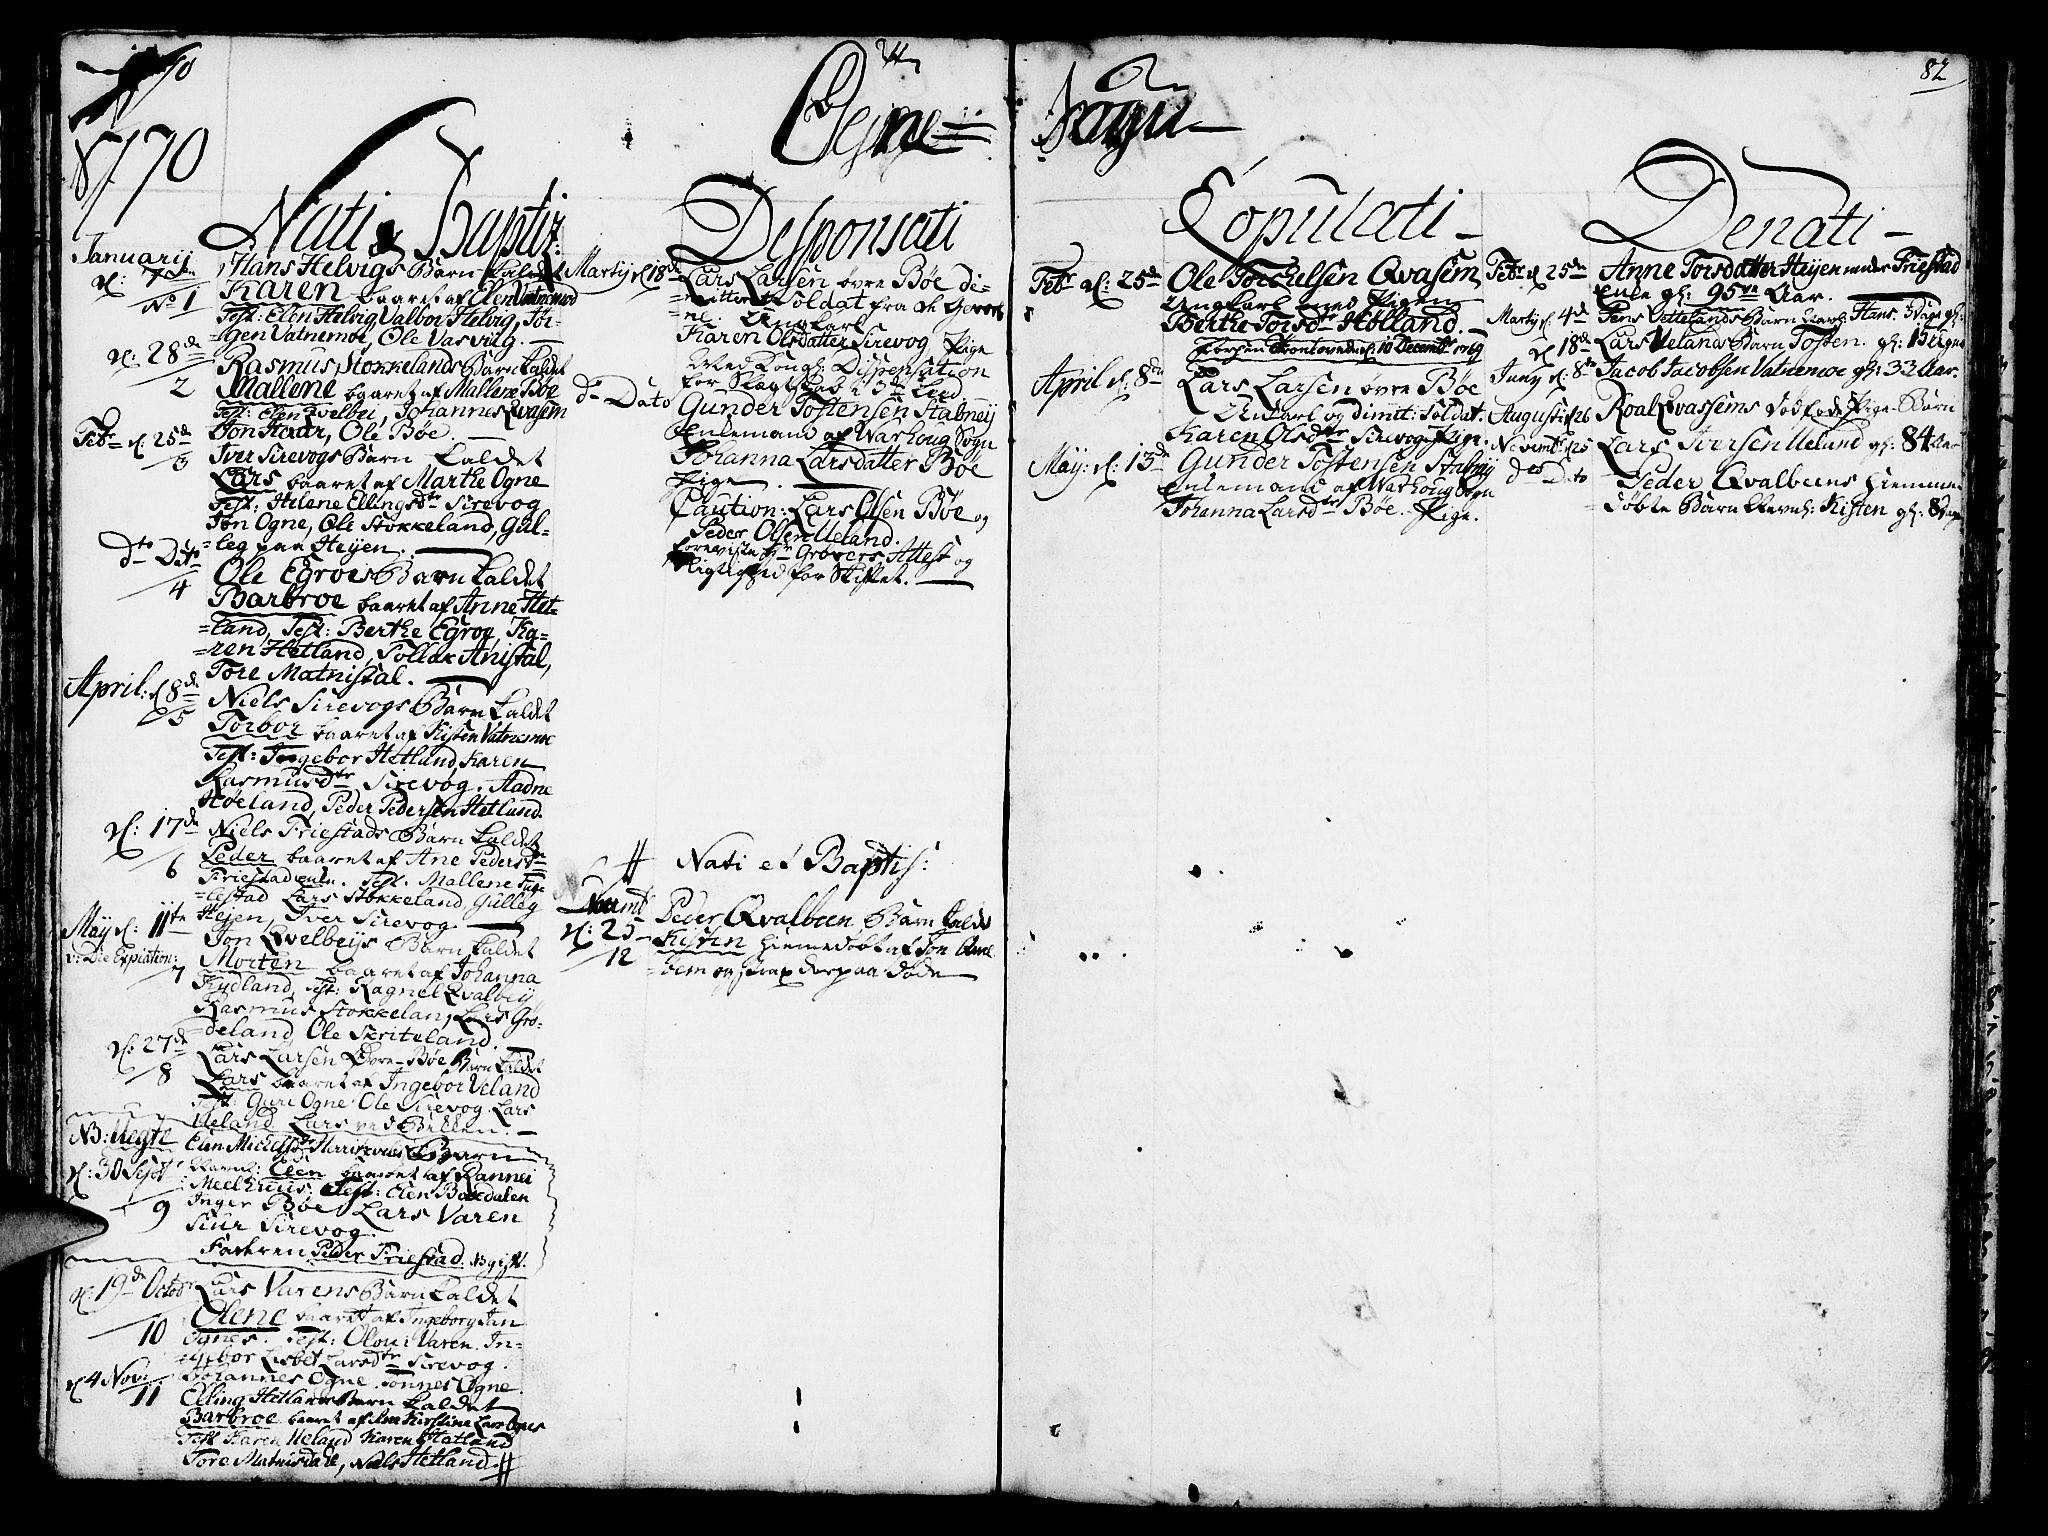 1770
Ogne Sogn
82
Nati & Baptiz:
Januarij
d: 7de
No 1
Hans Helvigs Barn kaldet
Karen baaret af Elen Vatnemoe
Test: Elen Helvig Valbor Helvig, Tor-
gen Vatnemoe, Ole Vasvug.
d: 28de
2
Rasmus Stokkelands Barn kaldet
Mallene baaret af Mallene Bøe
Test: Elen Qvelbei, Johannes Qvasem
Jon Haar, Ole Bøe.
Febr d: 25de
3
Iver Sirevogs Barn kaldet
Lars baaret af Marthe Ogne
Test: Helene Ellingsdtr Sirevog
Jon Ogne, Ole Stokkeland, Gul-
leg paa Heijen.
Dto Dato
4
Ole Egroes Barn kaldet
Barbroe baaret af Anne Het-
=land, Test: Berthe Egroe, Ka-
=ren Hetland, Tollak Anistal,
Tore Matnistal.
April: d 8de
5
Niels Sirevogs Barn kaldet
Torbor baaret af Kisten Vatnemoe
Test: Ingebor Hetland, Karen
Rasmusdtr Sirevog, Aadne
Høeland, Peder Pedersen Hetland.
d: 17de
6
Niels Friestads Barn kaldet
Peder baaret af Ane Pedersdtr
Friestad enke. Test. Mallene Fuge
=lestad Lars Stokkeland, Gulleg
Heien, Iver Sirevog
Maij d: 11te
v: Die Expiation:
7
Jon Qvelbeijs Barn kaldet
Morten baaret af Johanna
Kydland, Test: Ragnel Qvalbeij
Rasmus Stokkelan, Lars Gro-
=deland Ole Skriteland
d: 27de
8
Lars Larsen Øvre Bøe Barn kaldet
Lars baaret af Ingebor Veland
Test: Guri Ogne Ole Sirevog. Lars
Ueland Lars ved Bekken.
NB: Uegte
d: 30 Sept
9
Elen Michelsdtr Barn
Elen baaret af Rannei
Meelhuus. Test: Elen Boxdalen
Inger Bøe Lars Varen
Siur Sirevog.
Faderen Peder Friestad.
d: 19de Octobr
10
Lars Varens Barn kaldet
Olene baaret af Ingeborg Jan
Ognes. Test: Olou Varen. In-
=gebor Lisbet Larsdtr Sirevog.
Johannes Ogne. Tønnes Ogne.
d 4 Nov:
11
Elling Hetlands Barn kaldet
Barbroe baaret af Ane Kirstine Lars Ognes
Test Karen Ueland Karen Hetland
Tore Matnisdale, Niels Hetland #
Desponsati
Martij d 18de
Lars Larsen øvre Bøe di-
=mitteret Soldat fra
Ungkarl
Karen Olsdatter Sirevog Pige
Med Kongl: Dispensation
for Slegtskab i 3de Leed
Dto Dato
Gunder Tostensen Stabneij
Enkemand af Warhoug Sogn
Johanna Larsdatter Bøe
Pige.
Caution: Lars Olsen Bøe og
Peder Olsen Ueland.
foreviste Hr Gröwers Attest og
Rigtighed for Skiftet.
# Nati et Baptis:
Novembr
d: 25
12
Peder Qvalbeen Barn kaldet
Kistin hiemedøbt af Jon Qval-
=been og strax derpaa døde
Copulati
Febr d: 25de
Ole Torkelsen Qvasem
Ungkarl med Pigen
Berthe Torsdtr Hølland.
d: 10 Decembr 1769
April d: 8de
Lars Larsen øvre Bøe
Unkarl og dimit: Soldat.
Karen Olsdtr Sirevog Pige.
Maij: d: 13de
Gunder Tostensen Stabneij
Enkemand af Warhoug Sogn
Johanna Larsdtr Bøe. Pige.
Denati
Febr d 25de
Anne Torsdatter Heijen under Friestad
Enke gl: 95ve Aar.
Martij d: 4de
Jens Vettelands Barn Navnl: Hans. 3 Dage gl:
d 18de
Lars Velands Barn Tosten. gl: 1
Junij d: 8de
Jacob Jacobsen Vatnemoe gl: 33 Aar.
August: d: 26
Roal Qvassems dødfødde Pige-Barn
Novembr: d: 25
Lars Iversen Ueland gl: 84 Aar
Dto Dato
Peder Qvalbeens hiemme
=døbte Barn Navnl: Kisten gl: 8 Dage